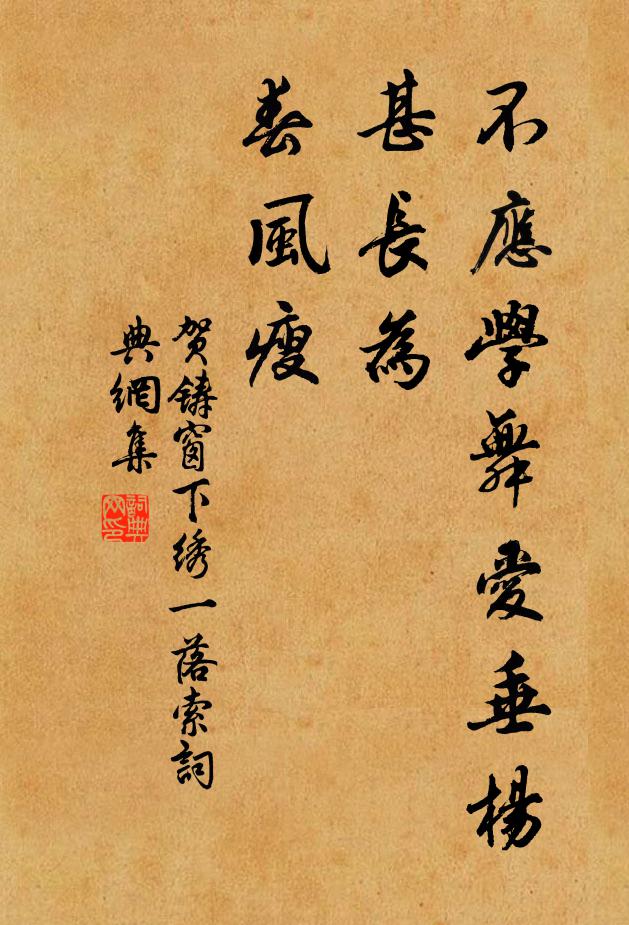 不應學舞愛垂楊
甚長為
春風瘦
贺鑄窗下绣一落索詞
典網集
詞典
网印